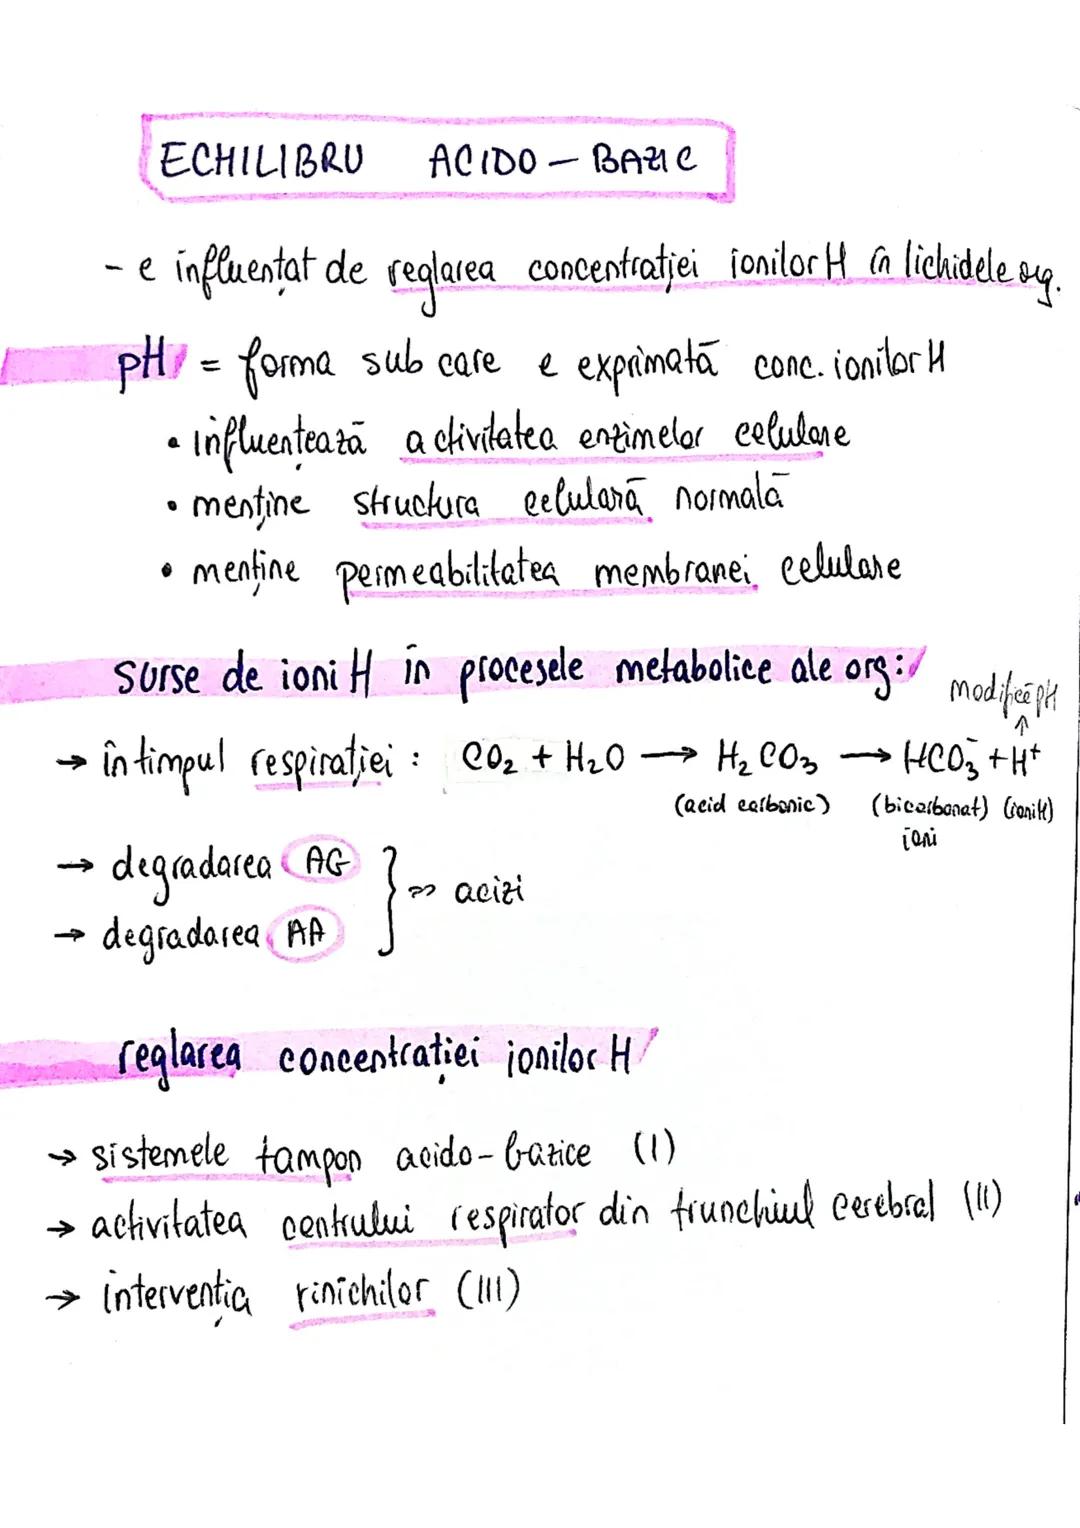 ECHILIBRU ACIDO - BAZIC
- e influențat de reglarea concentrației ionilor H în lichidele org.
pH = forma sub care e exprimată conc. ionilor H
• influențează activitatea enzimelor celulare
• menține structura celulară normală
• menține permeabilitatea membranei celulare
surse de ioni H în procesele metabolice ale org:
modifică pH
↑
→ în timpul respirației : CO₂ + H₂O → H₂CO₃ → HCO₃⁻ + H⁺
(acid carbonic) (bicarbonat) (ioni H)
ioni
→ degradarea AG
} => acizi
→ degradarea AA
reglarea concentrației ionilor H
→ sistemele tampon acido-bazice (I)
→ activitatea centrului respirator din trunchiul cerebral (II)
→ intervenția rinichilor (III)